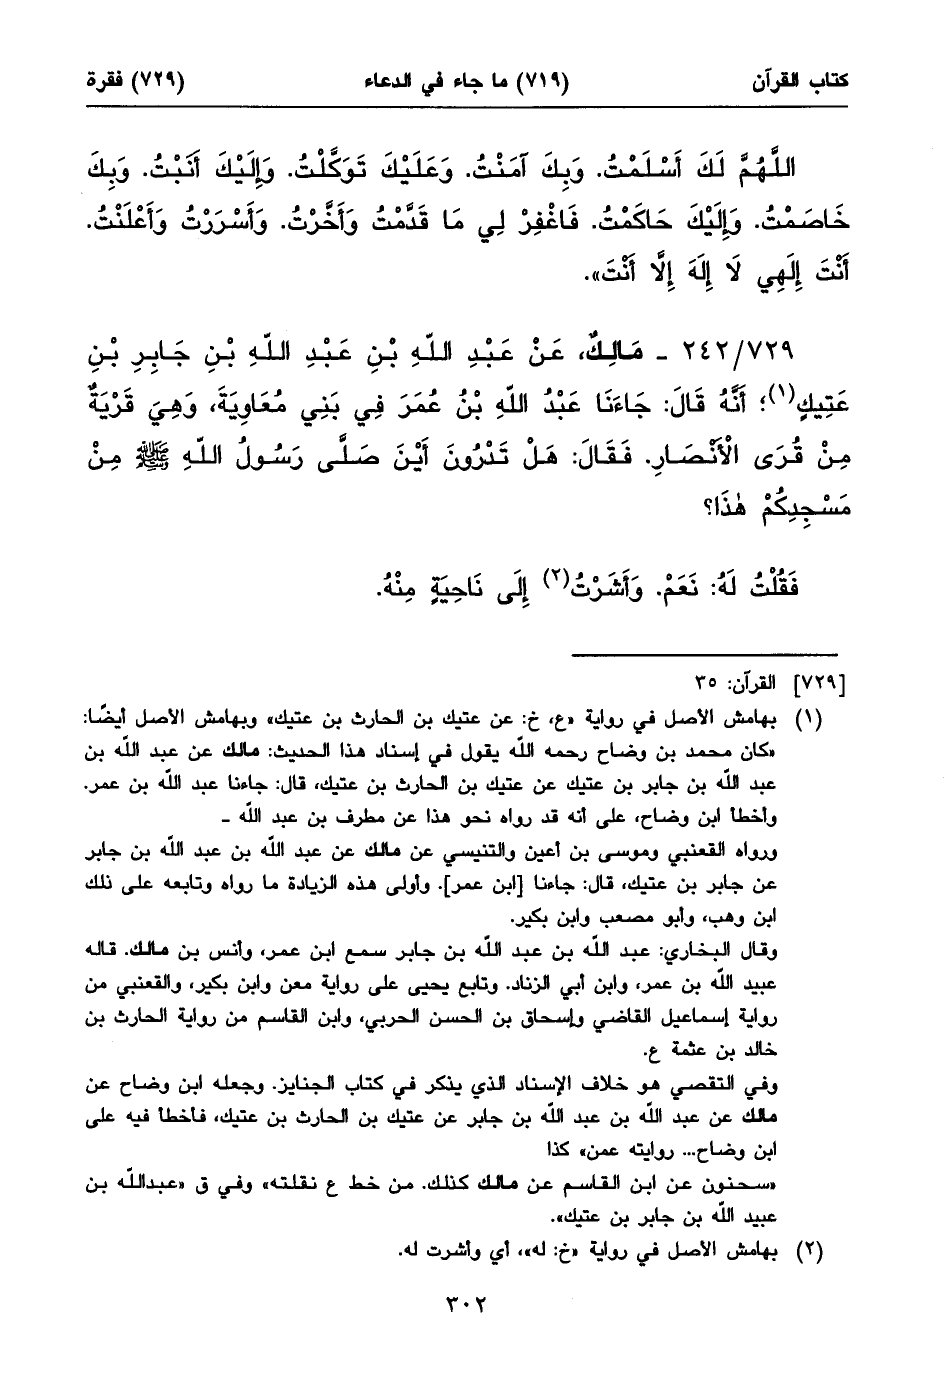 كتاب القرآن (٧١٩) ما جاء في الدعاء (٧٢٩) فقرة
اللَّهُمَّ لَكَ أَسْلَمْتُ. وَبِكَ آمَنْتُ. وَعَلَيْكَ تَوَكَّلْتُ. وَإِلَيْكَ أَنَبْتُ. وَبِكَ
خَاصَمْتُ. وَإِلَيْكَ حَاكَمْتُ. فَاغْفِرْ لِي مَا قَدَّمْتُ وَأَخَّرْتُ. وَأَسْرَرْتُ وَأَعْلَنْتُ.
أَنْتَ إِلَهِي لَا إِلَهَ إِلَّا أَنْتَ».
٢٤٢/٧٢٩ - مَالِكٌ، عَنْ عَبْدِ اللّهِ بْنِ عَبْدِ اللّهِ بْنِ جَابِرِ بْنِ
عَتِيكٍ(١)؛ أَنَّهُ قَالَ: جَاءَنَا عَبْدُ اللّهِ بْنُ عُمَرَ فِي بَنِي مُعَاوِيَةَ، وَهِيَ قَرْيَةٌ
مِنْ قُرَى الْأَنْصَارِ. فَقَالَ: هَلْ تَدْرُونَ أَيْنَ صَلَّى رَسُولُ اللّهِ ﷺ مِنْ
مَسْجِدِكُمْ هٰذَا؟
فَقُلْتُ لَهُ: نَعَمْ. وَأَشَرْتُ(٢) إِلَى نَاحِيَةٍ مِنْهُ.
[٧٢٩] القرآن: ٣٥
(١) بهامش الأصل في رواية «ع، خ: عن عتيك بن الحارث بن عتيك» وبهامش الأصل أيضًا:
«كان محمد بن وضاح رحمه الله يقول في إسناد هذا الحديث: مالك عن عبد الله بن
عبد الله بن جابر بن عتيك عن عتيك بن الحارث بن عتيك، قال: جاءنا عبد الله بن عمر.
وأخطأ ابن وضاح، على أنه قد رواه نحو هذا عن مطرف بن عبد الله -
ورواه القعنبي وموسى بن أعين والتنيسي عن مالك عن عبد الله بن عبد الله بن جابر
عن جابر بن عتيك، قال: جاءنا [ابن عمر]. وأولى هذه الزيادة ما رواه وتابعه على ذلك
ابن وهب، وأبو مصعب وابن بكير.
وقال البخاري: عبد الله بن عبد الله بن جابر سمع ابن عمر، وأنس بن مالك. قاله
عبيد الله بن عمر، وابن أبي الزناد. وتابع يحيى على رواية معن وابن بكير، والقعنبي من
رواية إسماعيل القاضي وإسحاق بن الحسن الحربي، وابن القاسم من رواية الحارث بن
خالد بن عثمة ع.
وفي التقصي هو خلاف الإسناد الذي يذكر في كتاب الجنايز. وجعله ابن وضاح عن
مالك عن عبد الله بن عبد الله بن جابر عن عتيك بن الحارث بن عتيك، فأخطأ فيه على
ابن وضاح... روايته عمن» كذا
«سحنون عن ابن القاسم عن مالك كذلك. من خط ع نقلته» وفي ق «عبدالله بن
عبيد الله بن جابر بن عتيك».
(٢) بهامش الأصل في رواية «خ: له»، أي وأشرت له.
٣٠٢